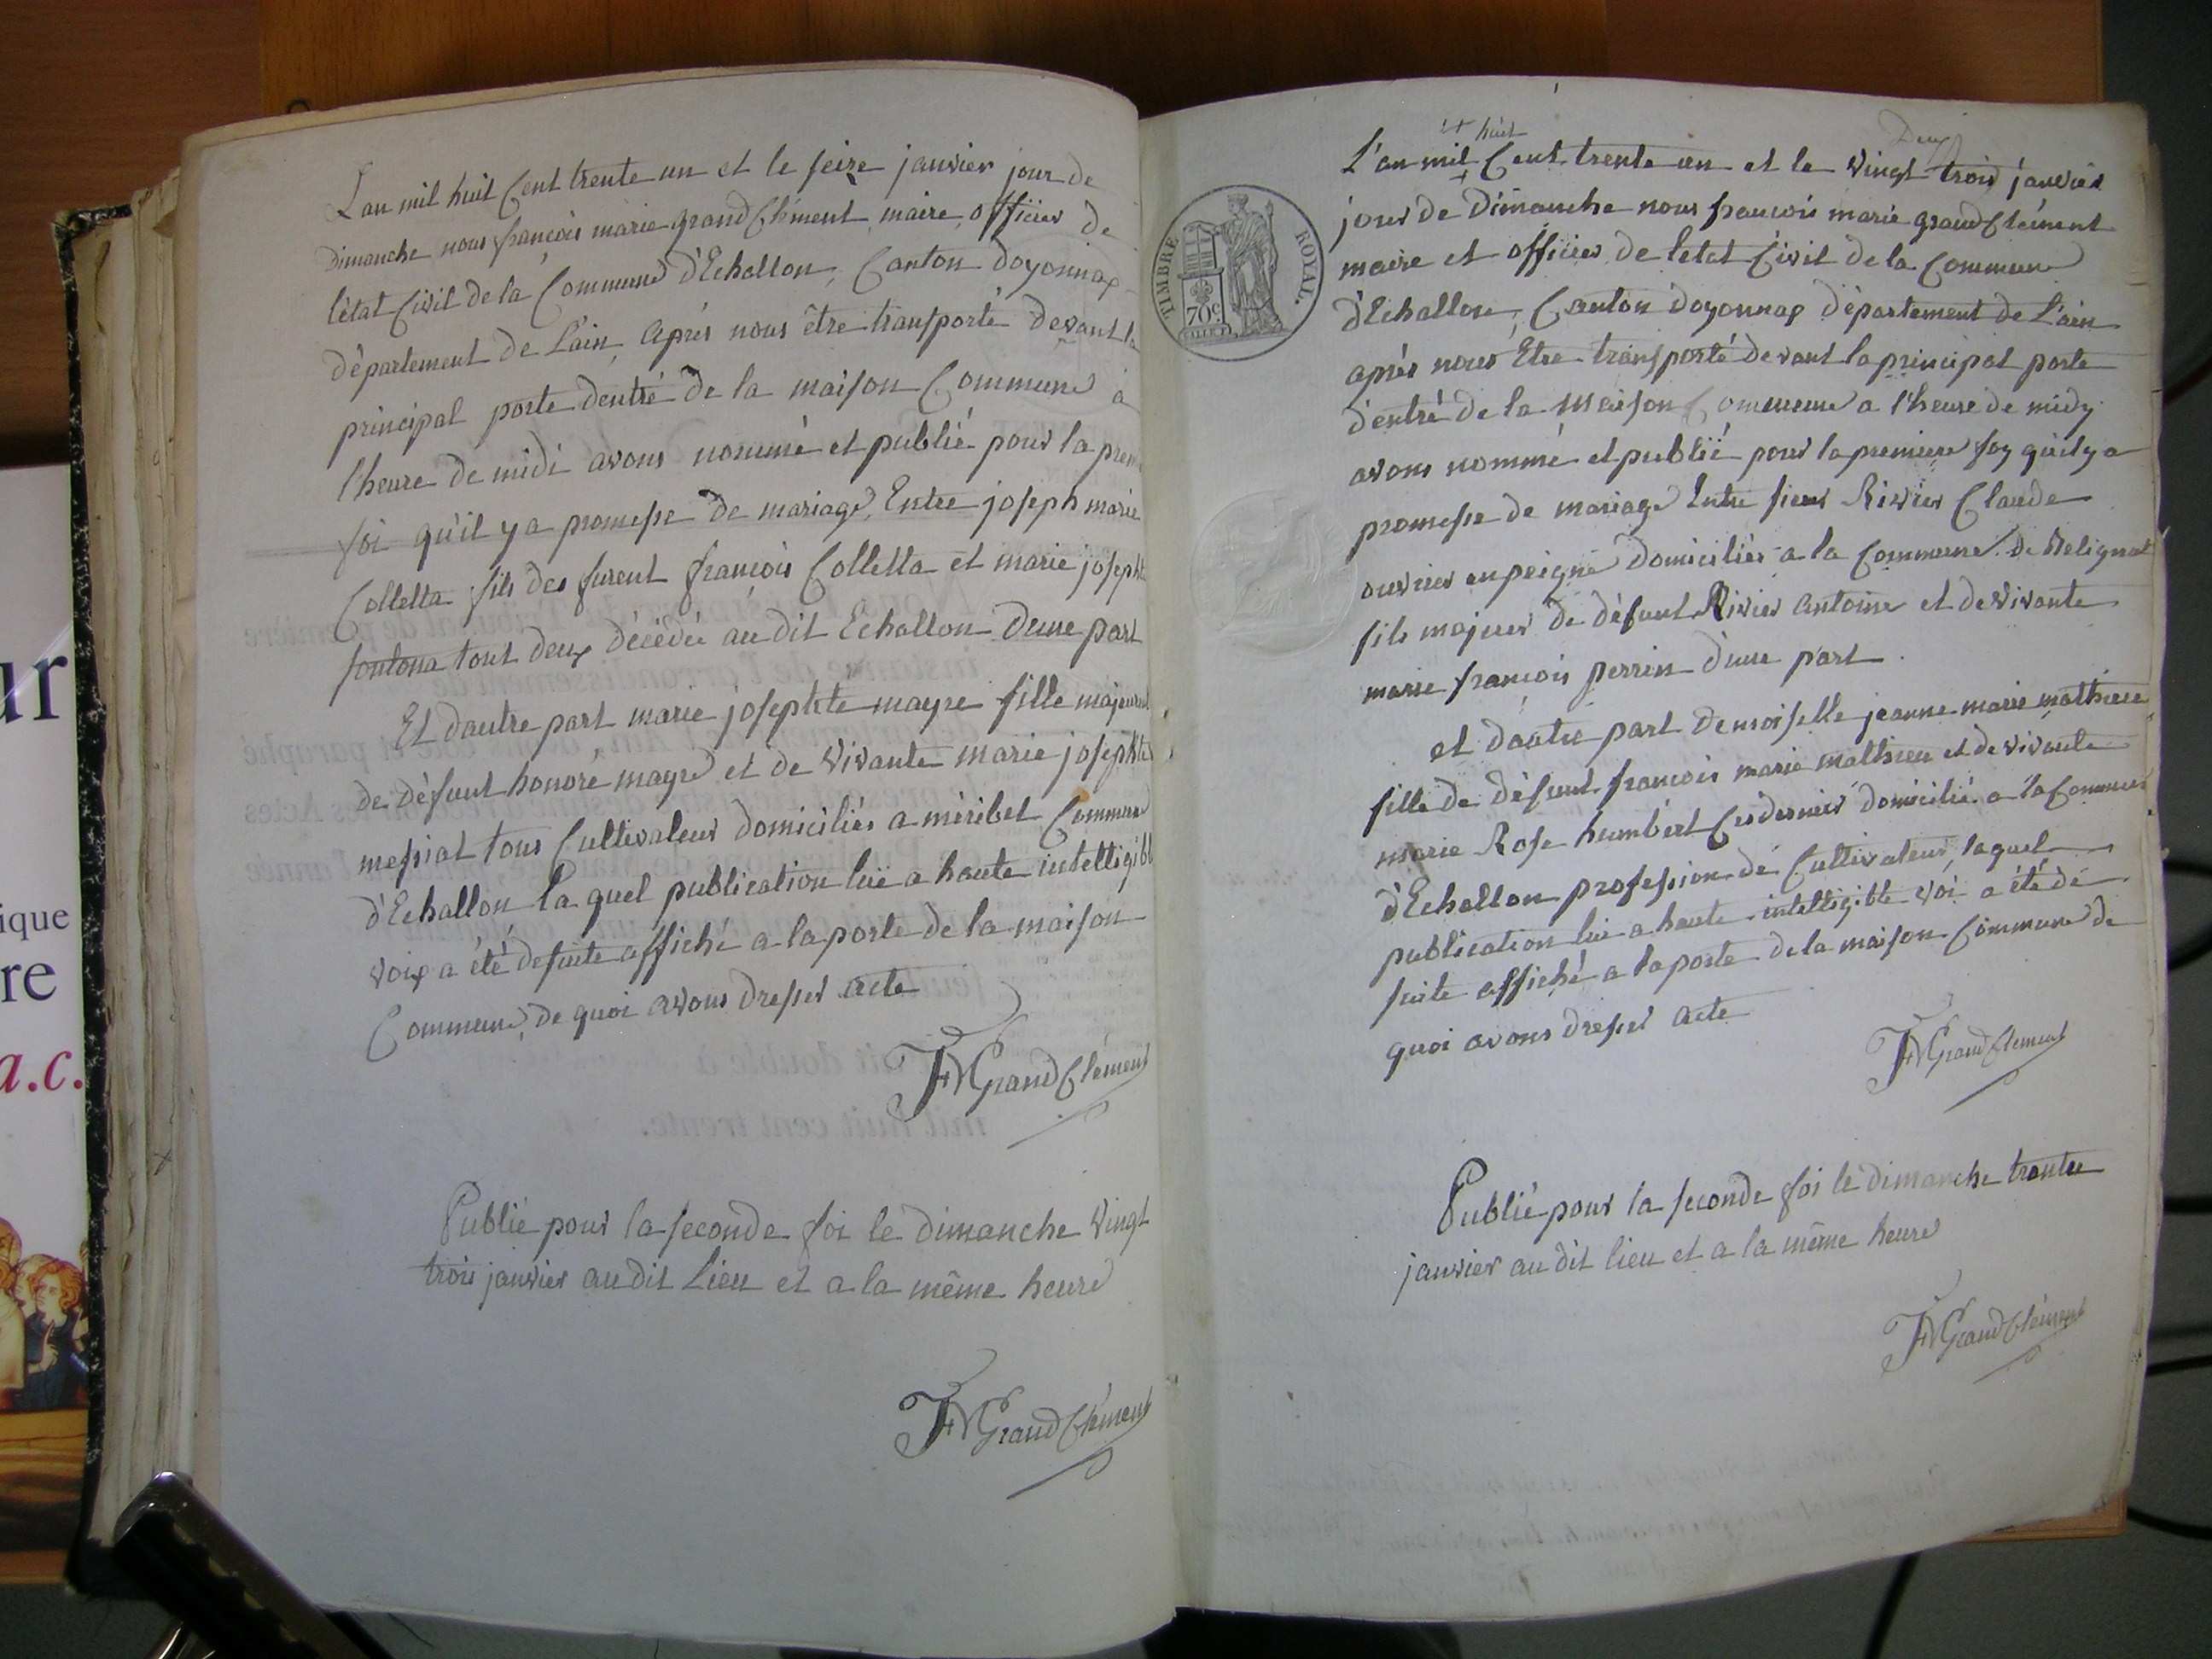 L'an mil huit Cent trente un et le seize janvier jour de
Dimanche nous françois marie grandClément maire officier de
l'état Civil de la Commune d'Echallon, Canton doyonnax
département de L'ain, Après nous être transporté devant la
principal porte dentré de la maison Commune à
l'heure de midi avons nommé et publié pour la prem
foi qu'il y a promesse de mariage, Entre joseph marie
Colletta fils des furent françois Colletta et marie josephte
tout deux décédée au dit Echallon Dune part
Et dautre part marie josephte mayre fille majeure
de défunt honoré mayre et de vivante marie josephte
messiat tous Cultivateur domiciliés a méribel Commune
d'Echallon la quel publication lue a haute intelligible
voix a été desuite affiché a la porte de la maison
Commune, de quoi avons dresser acte
FMGrandClément
Publié pour la seconde foi le dimanche vingt
trois janvier au dit Lieu et a la même heure
FMGrandClément
ur
ique
re
a.c.
TIMBRE ROYAL.
70c
Deux
huit
L'an mil Cent trente un et le vingt trois janvier
jour de Dimanche nous francois marie grandClément
maire et officier de letat Civil de la Commune
d'Echallon, Canton doyonnax département de L'ain
après nous Etre transporté devant la principal porte
d'entré de la maison Commune a l'heure de midy
avons nommé et publié pour la premiere foy quil y a
promesse de mariage Entre sieur Rivier Claude
ouvrier enpeigne Domiciliés a la Commune de Belignat
fils majeur de défunt Rivier antoine et de vivante
marie françois perrin d'une part
et dautre part demoiselle jeanne marie mathieu
fille de défunt francois marie mathieu et de vivante
marie Rose humbert Ces dernier domicilié a la Commune
d'Echallon profession de Cultivateur, laquel
publication lui a haute intelligible voi a été de
suite affiché a la porte de la maison Commune de
quoi avons dresser acte
FMGrandClément
Publié pour la seconde foi le dimanche trente
janvier au dit lieu et a la même heure
FMGrandClément